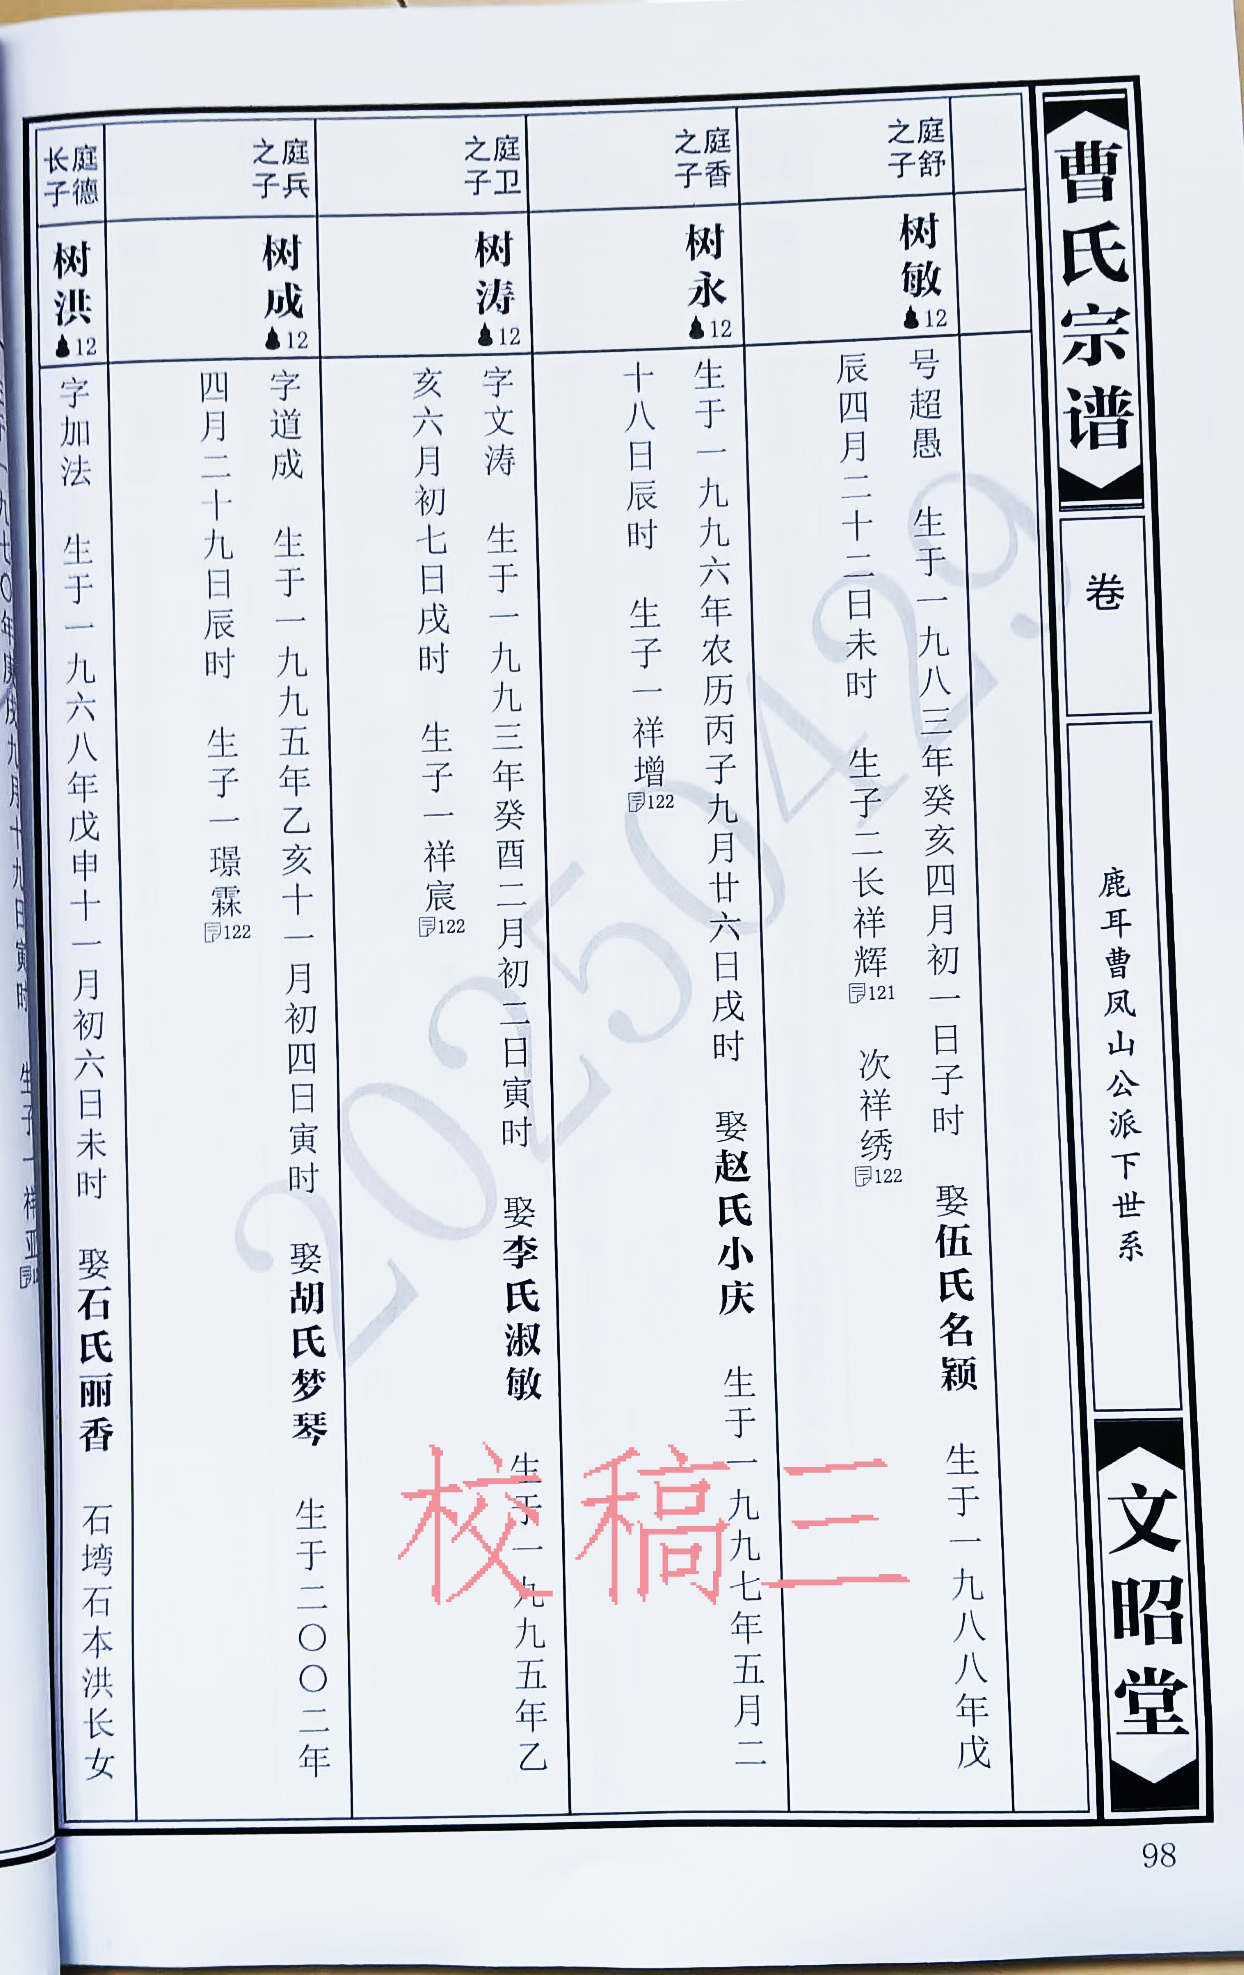 曹氏宗谱
卷
鹿耳曹凤山公派下世系
文昭堂
98
庭舒
之子
树敏
12
号超愚 生于一九八三年癸亥四月初一日子时 娶伍氏名颖 生于一九八八年戊
辰四月二十二日未时 生子二长祥辉121 次祥绣122
庭香
之子
树永
12
生于一九九六年农历丙子九月廿六日戌时 娶赵氏小庆 生于一九九七年五月二
十八日辰时 生子一祥增122
庭卫
之子
树涛
12
字文涛 生于一九九三年癸酉二月初二日寅时 娶李氏淑敏 生于一九九五年乙
亥六月初七日戌时 生子一祥宸122
庭兵
之子
树成
12
字道成 生于一九九五年乙亥十一月初四日寅时 娶胡氏梦琴 生于二〇〇二年
四月二十九日辰时 生子一璟霖122
庭德
长子
树洪
12
字加法 生于一九六八年戊申十一月初六日未时 娶石氏丽香 石塆石本洪长女
20250429
校稿三
九七〇年庚戌九月十九日寅时 生子一祥亚